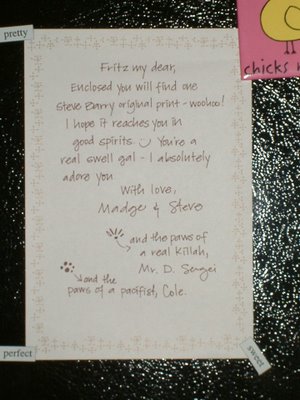 pretty
Fritz my dear,
Enclosed you will find one
Steve Barry original print - woohoo!
I hope it reaches you in
good spirits. You're a
real swell gal - I absolutely
adore you
With love,
Madge & Steve
and the paws of
a real Killah,
Mr. D. Sergei
and the
paws of a pacifist, Cole.
perfect
sweet
chicks